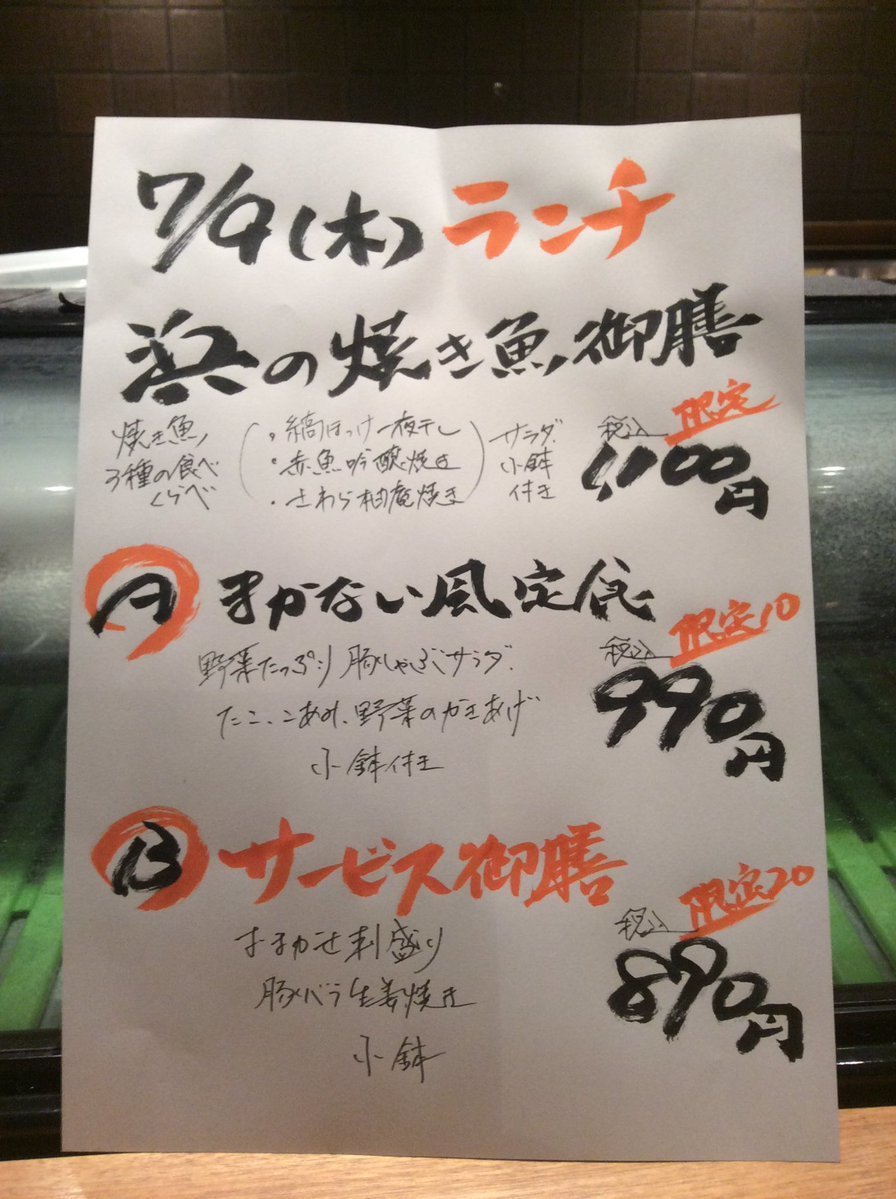 7/9(木)ランチ
浜の焼き魚御膳
焼き魚
3種の食べ
くらべ
・縞ほっけ一夜干し
・赤魚吟醸焼き
・さわら柚庵焼き
サラダ
小鉢
付き
限定
税込
1,100円
A まかない風定食
野菜たっぷり豚しゃぶサラダ
たこ、こあみ、野菜のかきあげ
小鉢付き
限定10
税込
990円
B サービス御膳
おまかせ刺盛り
豚バラ生姜焼き
小鉢
限定20
税込
890円